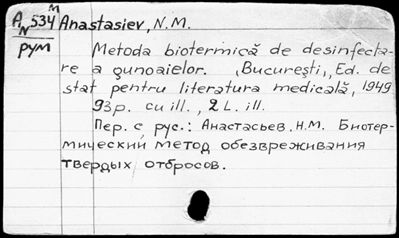 A N 534 M Anastasiev, N.M.
рум
Metoda biotermică de desinfecta-
re a gunoaielor. București, Ed. de
stat pentru literatura medicală, 1949
93p. cu ill., 2 L. ill.
Пер. с рус.: Анастасьев Н.М. Биотер-
мический метод обезвреживания
твердых отбросов.